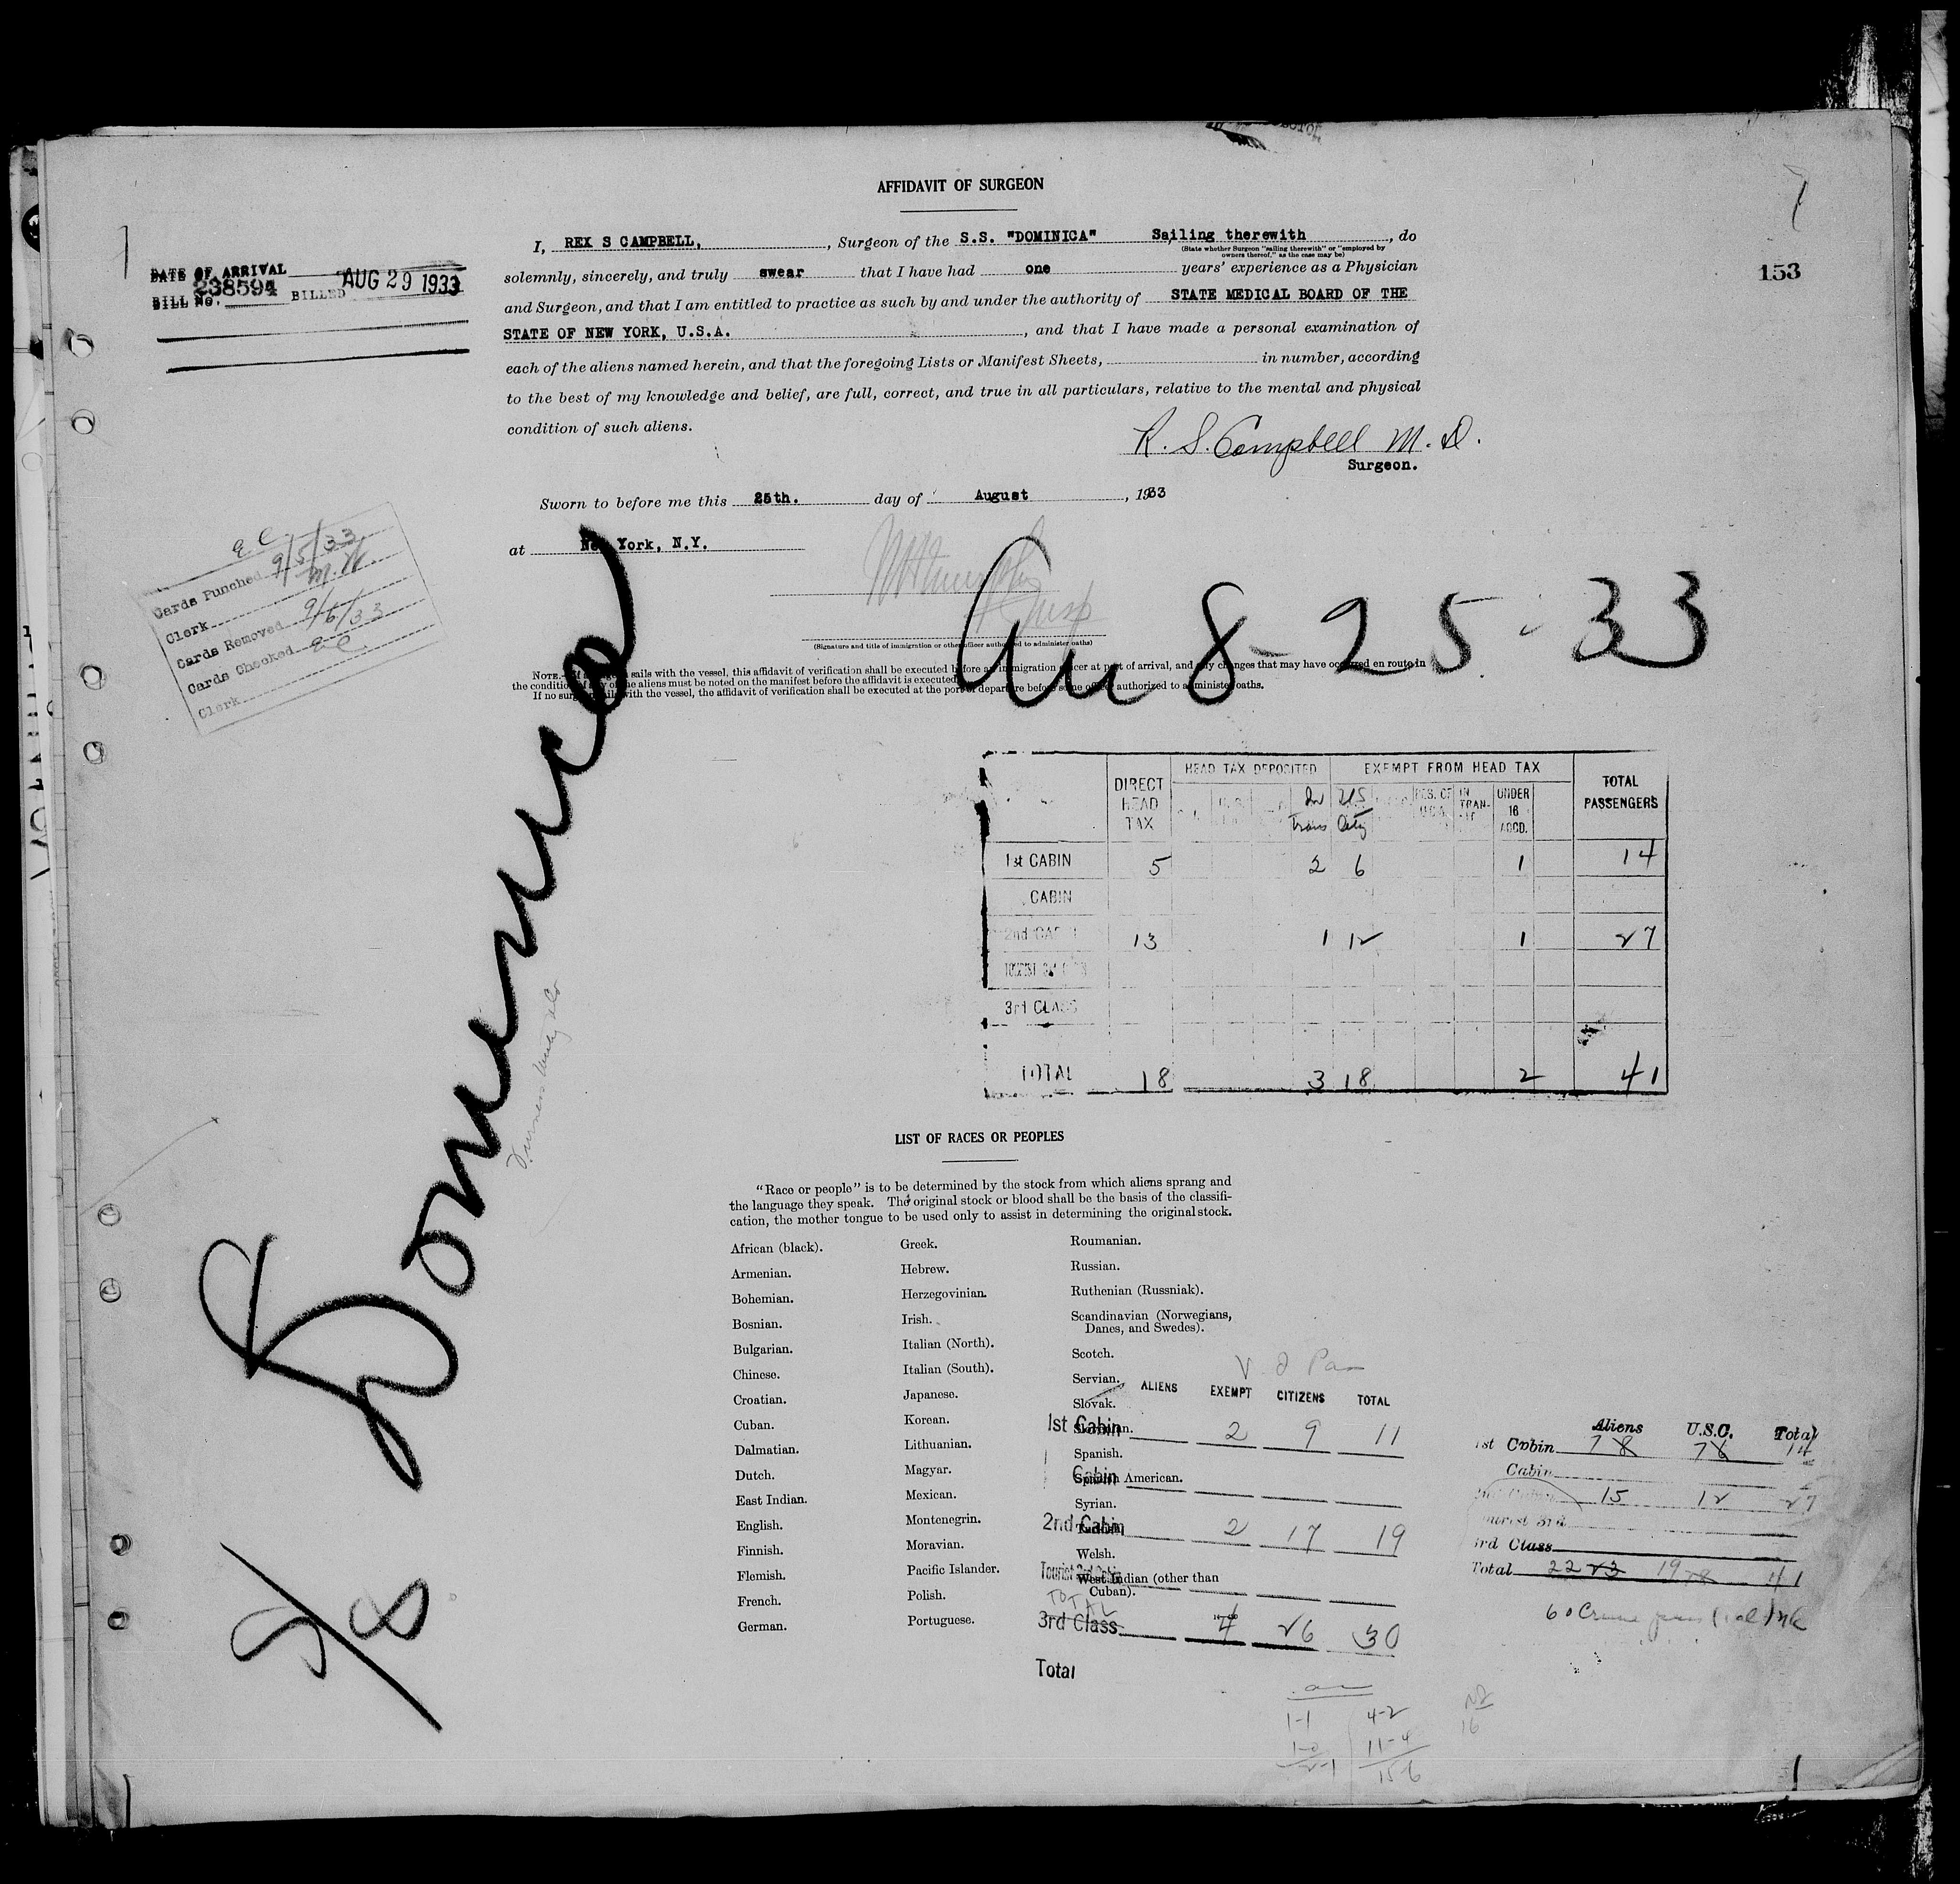 AFFIDAVIT OF SURGEON
I, REX S CAMPBELL, , Surgeon of the S.S. "DOMINICA" Sailing therewith , do
(State whether Surgeon "sailing therewith" or "employed by
owners thereof," as the case may be)
solemnly, sincerely, and truly swear that I have had one years' experience as a Physician
and Surgeon, and that I am entitled to practice as such by and under the authority of STATE MEDICAL BOARD OF THE
STATE OF NEW YORK, U.S.A. , and that I have made a personal examination of
each of the aliens named herein, and that the foregoing Lists or Manifest Sheets, in number, according
to the best of my knowledge and belief, are full, correct, and true in all particulars, relative to the mental and physical
condition of such aliens.
R. S. Campbell M. D.
Surgeon.
Sworn to before me this 25th. day of August , 1933
at New York, N.Y.
(Signature and title of immigration or other officer authorized to administer oaths)
NOTE.—If a surgeon sails with the vessel, this affidavit of verification shall be executed before an immigration officer at port of arrival, and any changes that may have occurred en route in
the condition of any of the aliens must be noted on the manifest before the affidavit is executed.
If no surgeon sails with the vessel, the affidavit of verification shall be executed at the port of departure before some officer authorized to administer oaths.
DATE OF ARRIVAL
BILL No. 238594 BILLED AUG 29 1933
153
Cards Punched 9/5/33
Clerk
Cards Removed 9/6/33
Cards Checked
Clerk
8-25-33
Dominica
DIRECT HEAD TAX
HEAD TAX DEPOSITED
EXEMPT FROM HEAD TAX
TOTAL PASSENGERS
In Trans
US City
RES. OF U.S.A.
IN TRAN-IT
UNDER 16 ACCD.
1st CABIN 5 2 6 1 14
CABIN
2nd CABIN 13 1 12 1 27
3rd CLASS
TOTAL 18 3 18 2 41
LIST OF RACES OR PEOPLES
"Race or people" is to be determined by the stock from which aliens sprang and
the language they speak. The original stock or blood shall be the basis of the classifi-
cation, the mother tongue to be used only to assist in determining the original stock.
African (black).
Armenian.
Bohemian.
Bosnian.
Bulgarian.
Chinese.
Croatian.
Cuban.
Dalmatian.
Dutch.
East Indian.
English.
Finnish.
Flemish.
French.
German.
Greek.
Hebrew.
Herzegovinian.
Irish.
Italian (North).
Italian (South).
Japanese.
Korean.
Lithuanian.
Magyar.
Mexican.
Montenegrin.
Moravian.
Pacific Islander.
Polish.
Portuguese.
Roumanian.
Russian.
Ruthenian (Russniak).
Scandinavian (Norwegians,
Danes, and Swedes).
Scotch.
Servian.
Slovak.
Slovenian.
Spanish.
Spanish American.
Syrian.
Turkish.
Welsh.
West Indian (other than
Cuban).
ALIENS EXEMPT CITIZENS TOTAL
1st Cabin 2 9 11
Cabin
2nd Cabin 2 17 19
Tourist 3rd Cabin
TOTAL
3rd Class 4 26 30
Total
Aliens U.S.C. Total
1st Cabin 7 8 7 6 14
Cabin
2nd Cabin 15 12 27
Tourist 3rd
3rd Class
Total 22 23 19 18 41
1-1 4-2
1-0 11-4
2-1 15-6
16